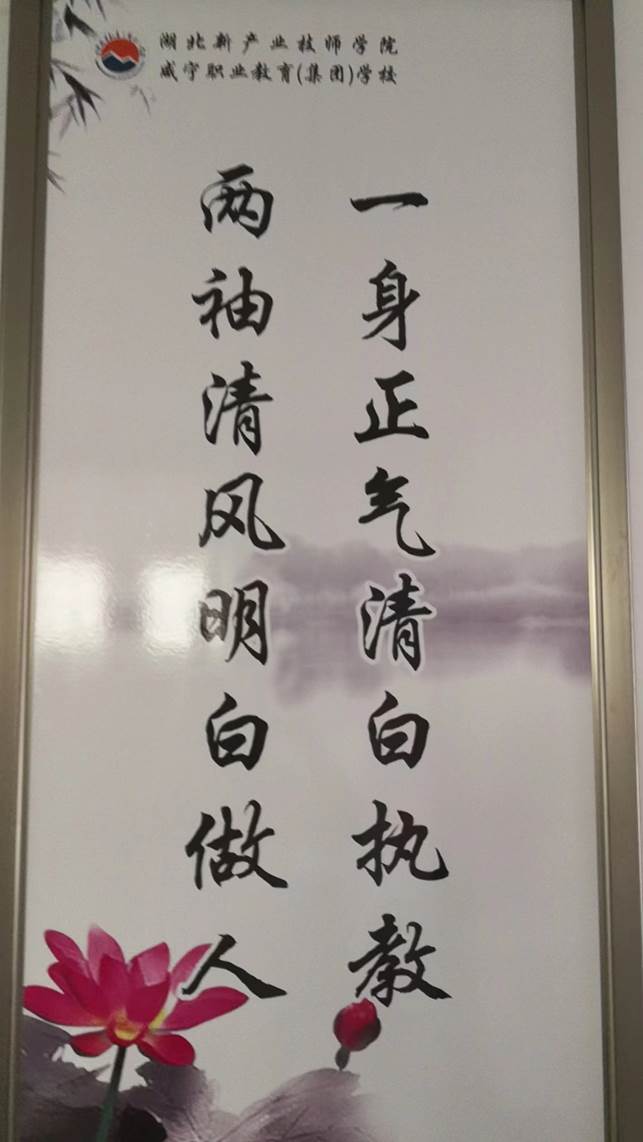 湖北新产业技师学院
咸宁职业教育(集团)学校
一身正气清白执教
两袖清风明白做人